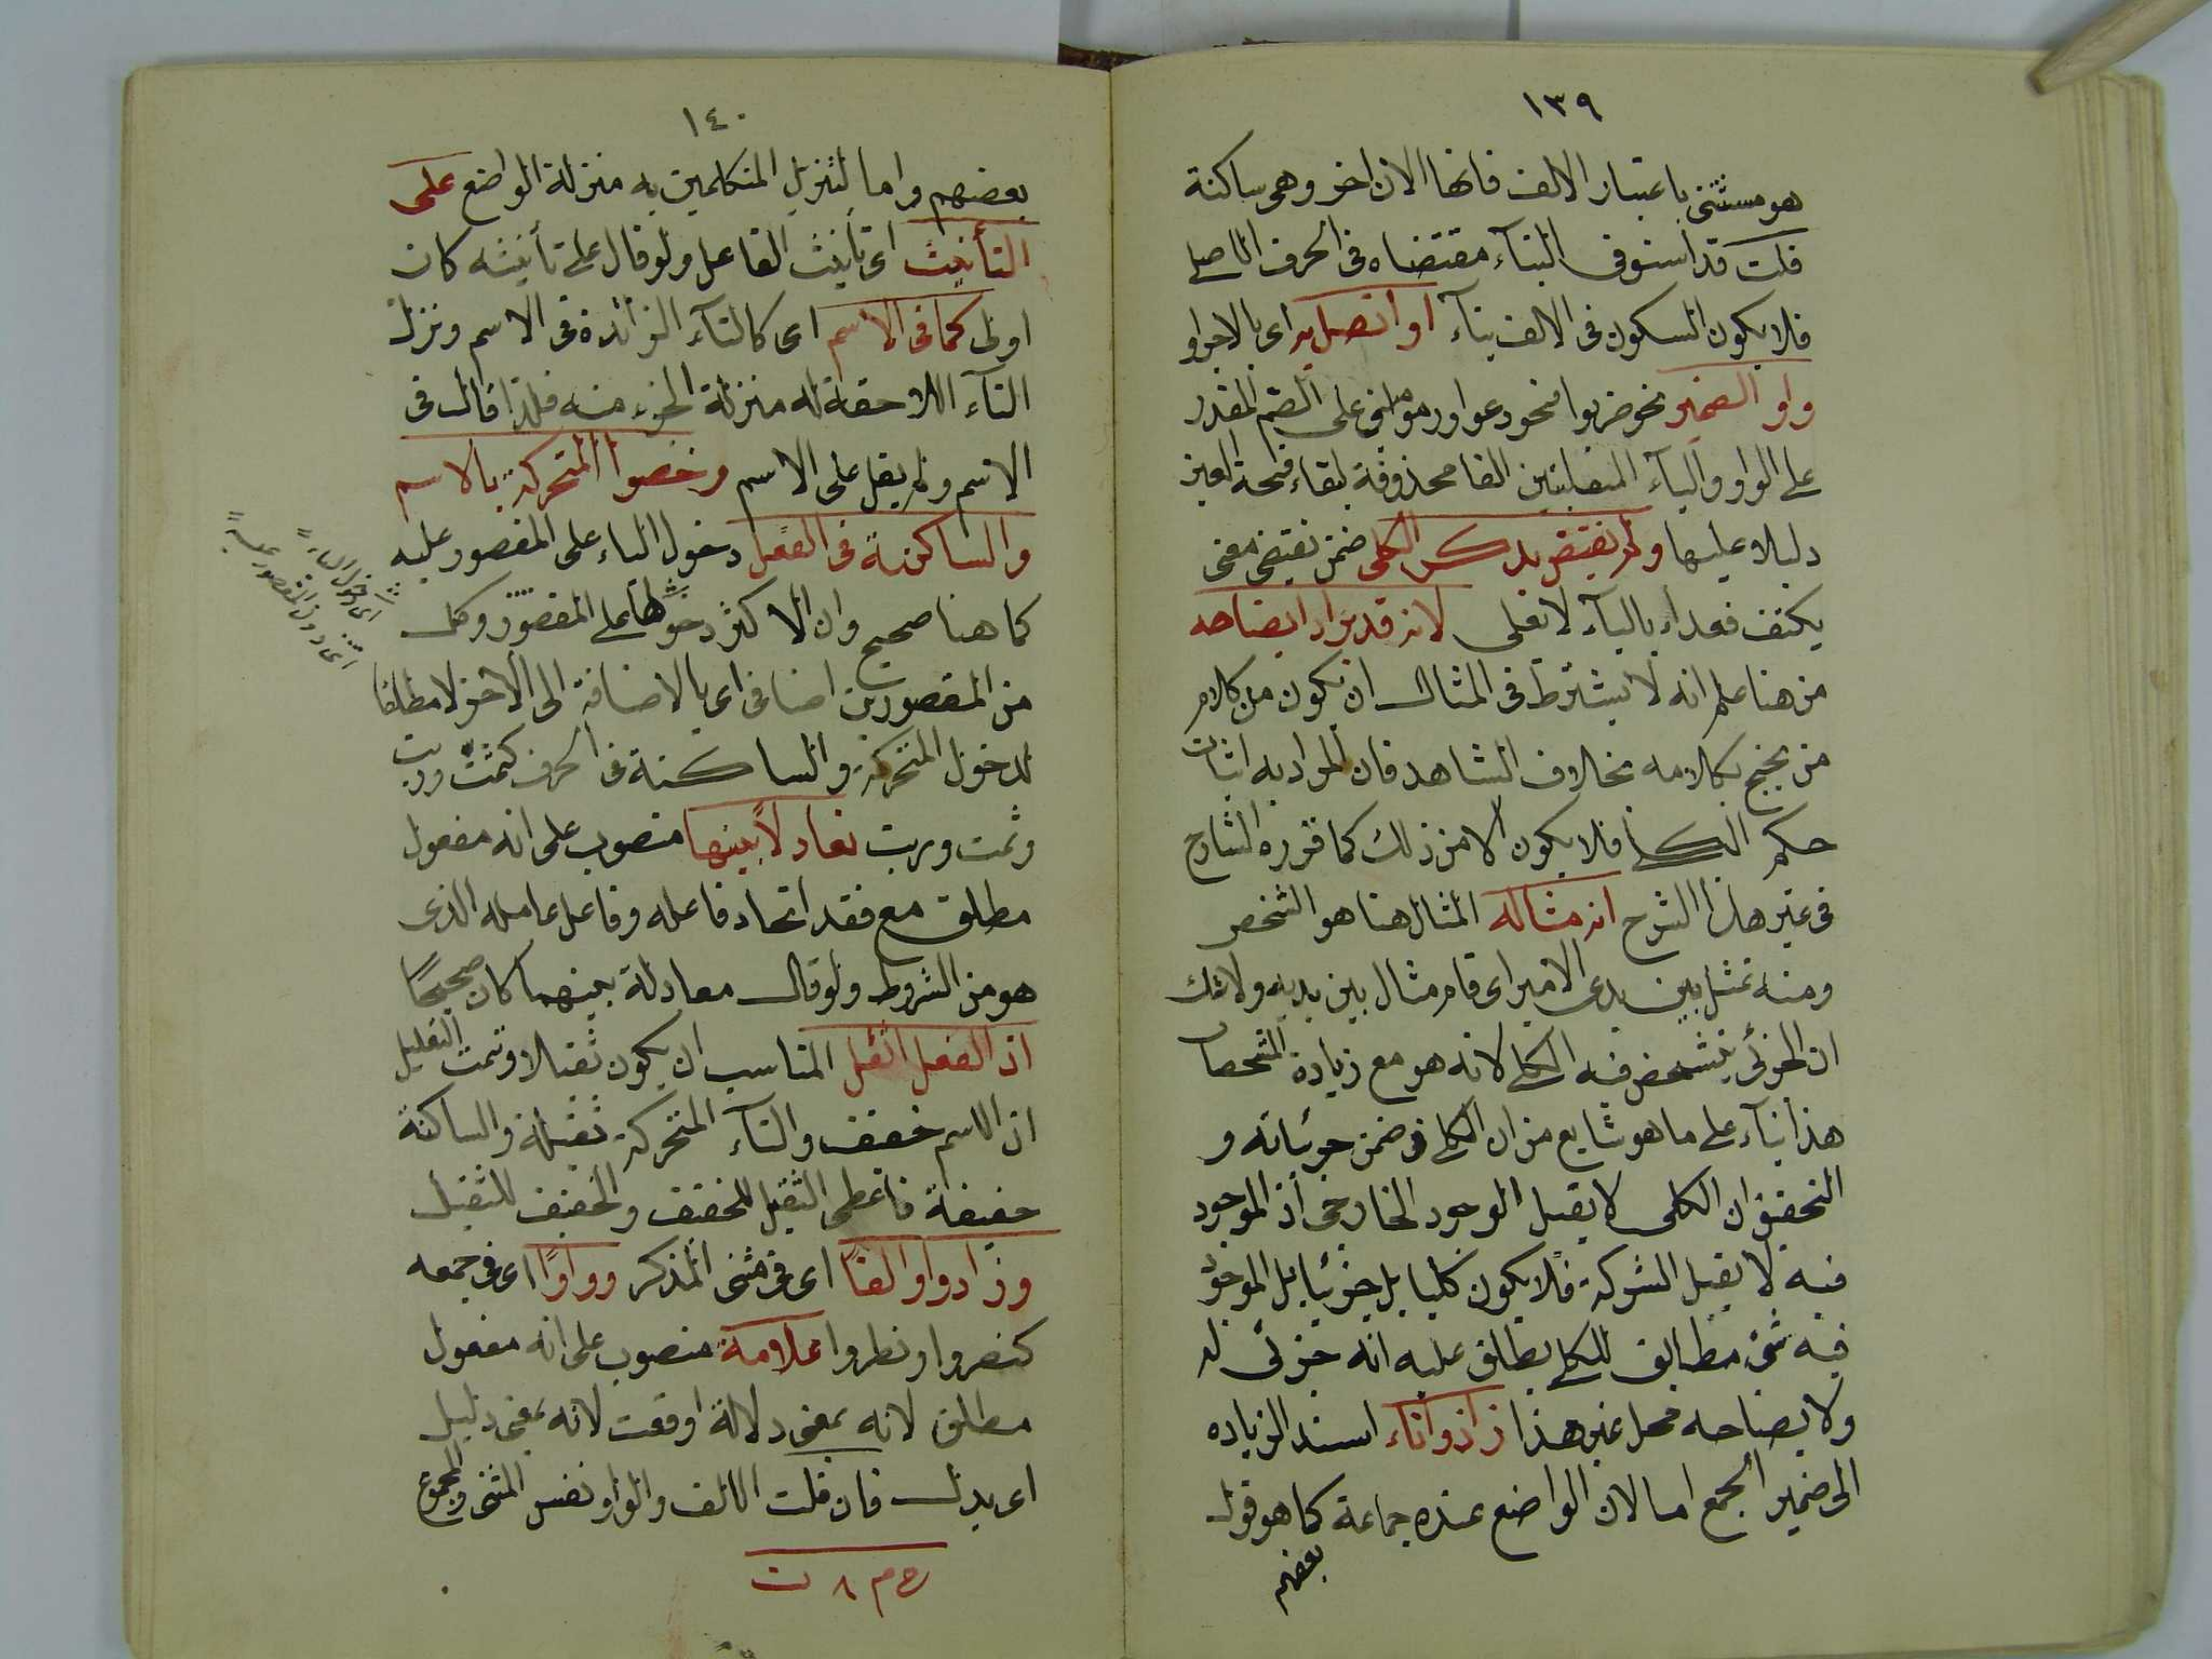 ١٣٩
هو مستثنى باعتبار الالف فانها الان اخر وهى ساكنة
قلت قد استوفى البنآء مقتضاه فى الحرف الاصلى
فلا يكون السكون فى الالف بنآء او اتصل به اى بالاجراو
واو الضمير نحو ضربوا نحو دعوا ورموا على الضم المقدر
على الواو واليآء المنقلبتين الفا محذوفة لبقاء فتحة العين
دليلا عليها ولم يفتقر بدكر الكلى ضمن يفتقر معنى
يكتف فعداه باليآء لا بعلى لانه قد يراد ايضاحه
من هنا علم انه لا يشترط فى المثال ان يكون من كلام
من يحتج بكلامه بخلاف الشاهد فان المراد به اثبات
حكم الكلى فلا يكون الا من ذلك كما قرره الشارح
فى غير هذا الشرح انه مثاله المثال هنا هو الشخص
ومنه تمثل بين يدى الامير اى قام مثال بين يديه ولا شك
ان الجزئى يتشخص فيه الكلى لانه هو مع زيادة المشخصات
هذا بنآء على ما هو شايع من ان الكلى فى ضمن جزئياته و
التحقيق ان الكلى لا يقبل الوجود الخارجى اذ الموجود
فيه لا يقبل الشركة فلا يكون كليا بل جزئيا بل الموجود
فيه شئ مطابق للكلى يطلق عليه انه جزئى له
ولا يضاحه محل غير هذا زادوا تاء اسند الزياده
الى ضمير الجمع اما لان الواضع عنده جماعة كما هو قول
بعضهم
١٤٠
بعضهم واما لتنزيل المتكلمين به منزلة الواضع على
التأنيث اى تأنيث الفاعل ولو قال على تأنيثه كان
اولى كما فى الاسم اى كالتآء الزائدة فى الاسم ونزل
التآء اللاحقة له منزلة الجزء منه فلذا قال فى
الاسم ولم يقل على الاسم وخصوا المتحركة بالاسم
والساكنة فى الفعل دخول الباء على المقصور عليه
كما هنا صحيح وان الاكثر دخولها على المقصور وكل
من المقصورين اضافى اى بالاضافة الى الاخر لا مطلقا
لدخول المتحركة والساكنة فى الحرف كثمت وربت
وثمت وربت تعادلاً بينهما منصوب على انه مفعول
مطلق مع فقد اتحاد فاعله وفاعل عامله الذى
هو من الشروط ولو قال معادلة بينهما كان صحيحًا
اذ الفعل اثقل المناسب ان يكون ثقيلا وتمت التعليل
ان الاسم خفيف والتآء المتحركة ثقيلة والساكنة
خفيفة فاعطى الثقيل للخفيف والخفيف للثقيل
وزادوا والفًا اى فى مثنى المذكر وواوًا اى فى جمعه
كنصروا ونصروا علامة منصوب على انه مفعول
مطلق لانه بمعنى دلالة اوقعت لانه بمعنى دليل
اى بدل فان قلت الالف والواو نفس المثنى والمجموع
اى دخول الباء
اى دون المقصور عليه